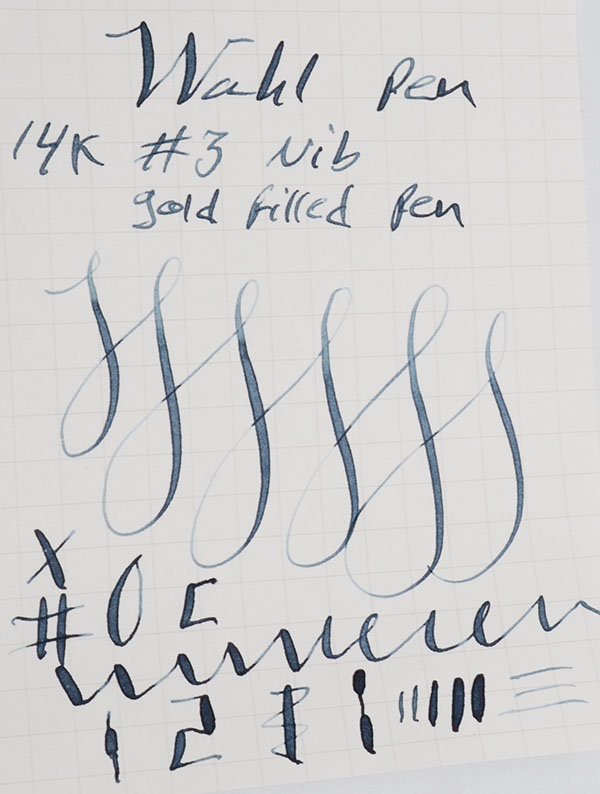 Wahl Pen
14K #3 Nib
gold filled Pen
X
# 0
1 2